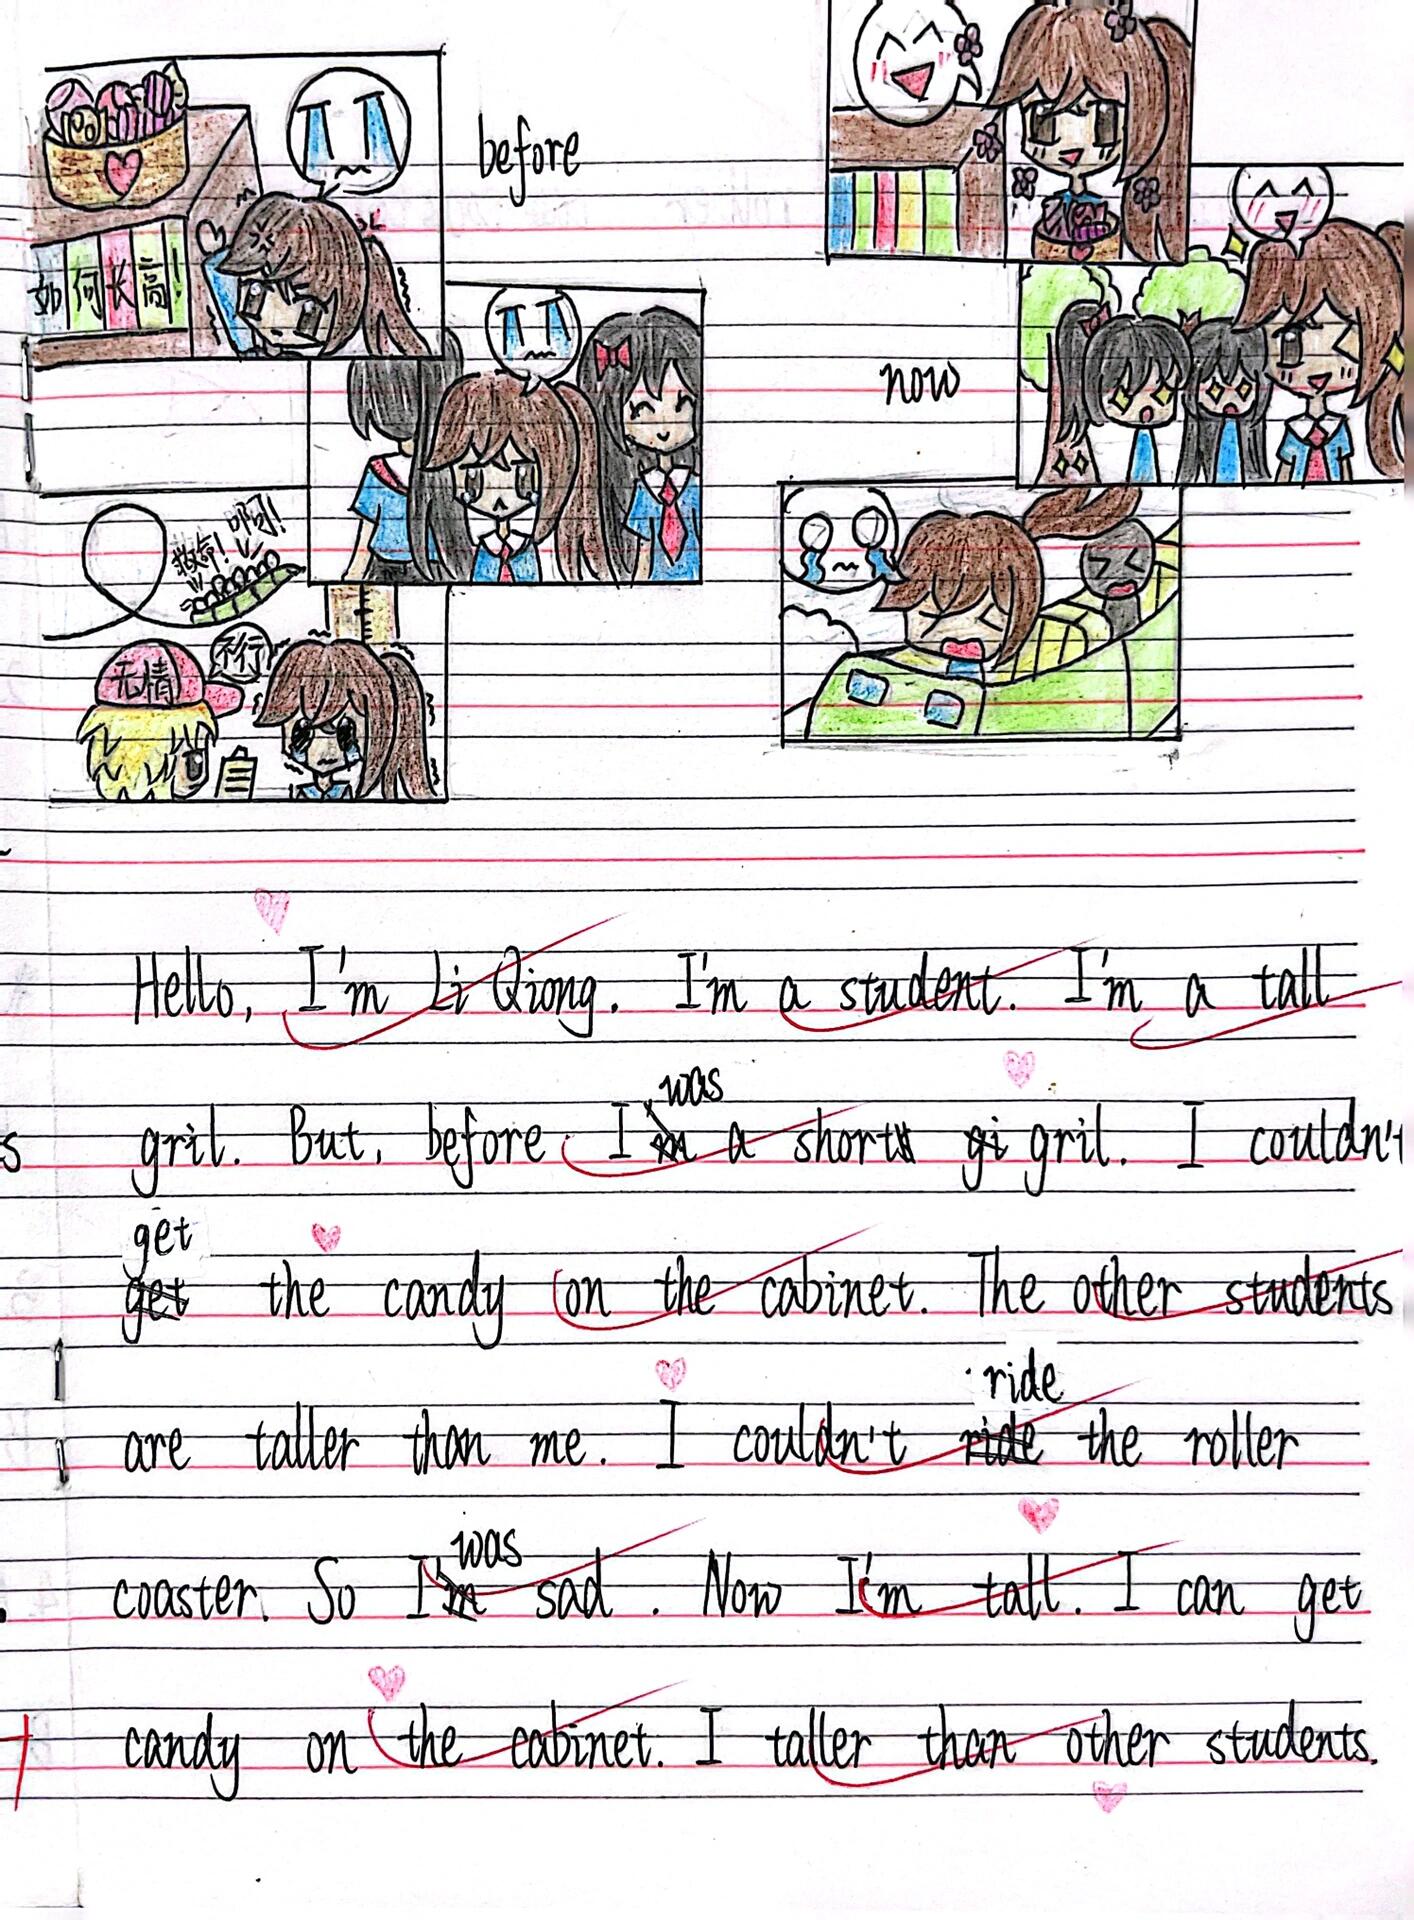 before
如何长高!
now
救命! 啊!
无情
不行
Hello, I'm Li Qiong. I'm a student. I'm a tall
was
gril. But, before I a short gril. I couldn't
get
get the candy on the cabinet. The other students
ride
are taller than me. I couldn't ride the roller
was
coaster. So I sad. Now I'm tall. I can get
candy on the cabinet. I taller than other students.